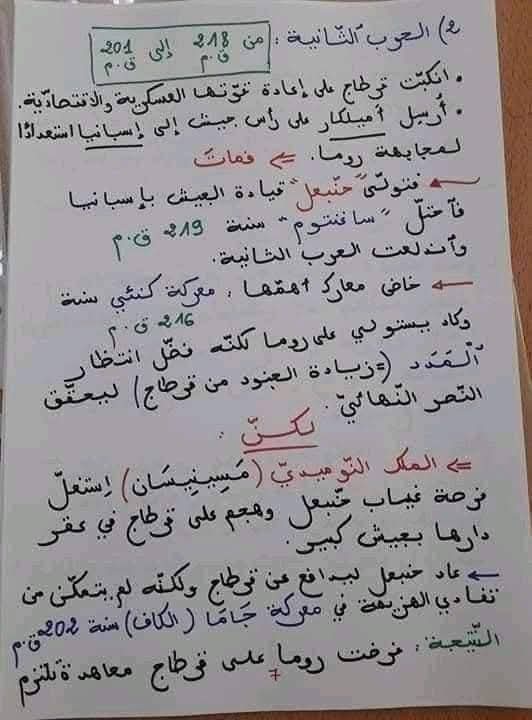 2) الحرب الثّانية: من 218 ق.م إلى 201 ق.م
• انكبّت قرطاج على إعادة قوّتها العسكرية والاقتصاديّة.
• أُرسل أميلكار على رأس جيش إلى إسبانيا استعدادًا
لمجابهة روما. ⇐ فمات
← فتولّى "حنّبعل" قيادة الجيش بإسبانيا
فاحتلّ "ساغنتوم" سنة 219 ق.م
واندلعت الحرب الثانية.
← خاض معارك أهمّها، معركة كنّاي سنة
216 ق.م
وكاد يستولي على روما لكنّه فضّل انتظار
المَدَد (= زيادة الجنود من قرطاج) ليحقّق
النصر النّهائيّ.
لكنّ :
⇐ الملك النّوميديّ (مَسِينِيسَان) اِستغلّ
فرصة غياب حنّبعل وهجم على قرطاج في عقر
دارها بجيش كبير.
← عاد حنبعل ليدافع عن قرطاج ولكنّه لم يتمكّن من
تفادي الهزيمة في معركة جَامَا (الكاف) سنة 202 ق.م
النّتيجة: فرضت روما على قرطاج معاهدة تلتزم
7